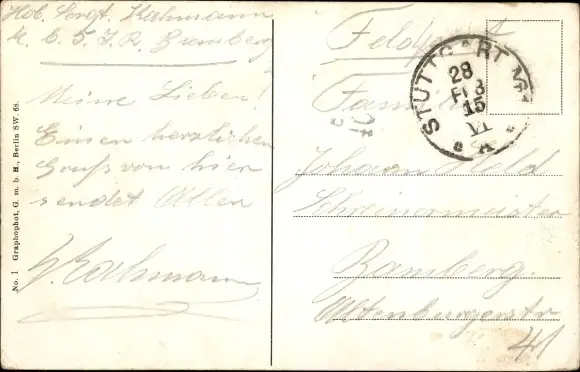 Hob. Sergt. Kahmann
K. 6. 5. J. R. Bamberg
Meine Lieben!
Einen herzlichen
Gruß von hier
sendet Allen
Kahmann
No. 1 Graphophot, G. m. b. H., Berlin SW. 68.
Feldpost
STUTTGART
28
FEB
15
VI
A
Familie
Johann Held
Schreinermeister
Bamberg.
Altenburgerstr
41